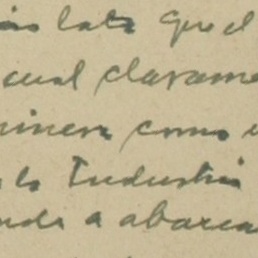 más lata que el
cual clarame
minera como
la Industria
nde a abarca